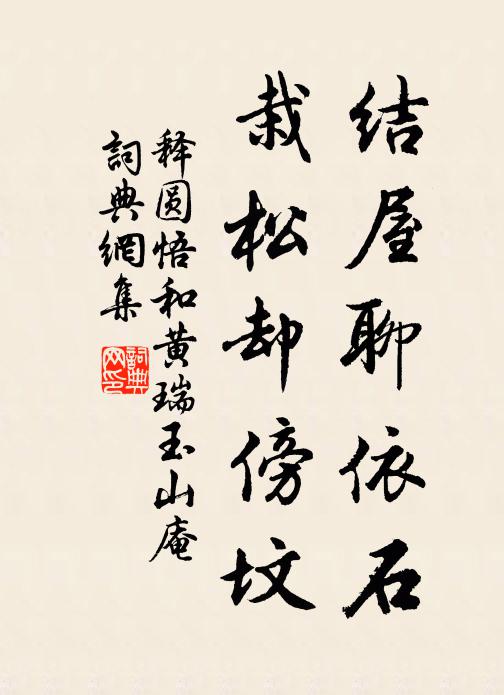 结屋聊依石
栽松却傍坟
释圆悟和黄瑞玉山庵
詞典網集
詞典网印